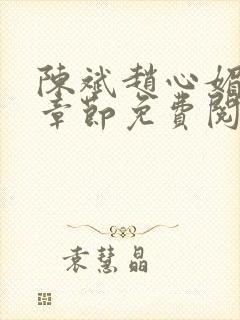 陳斌趙心媚
章節免費閱
袁慧晶